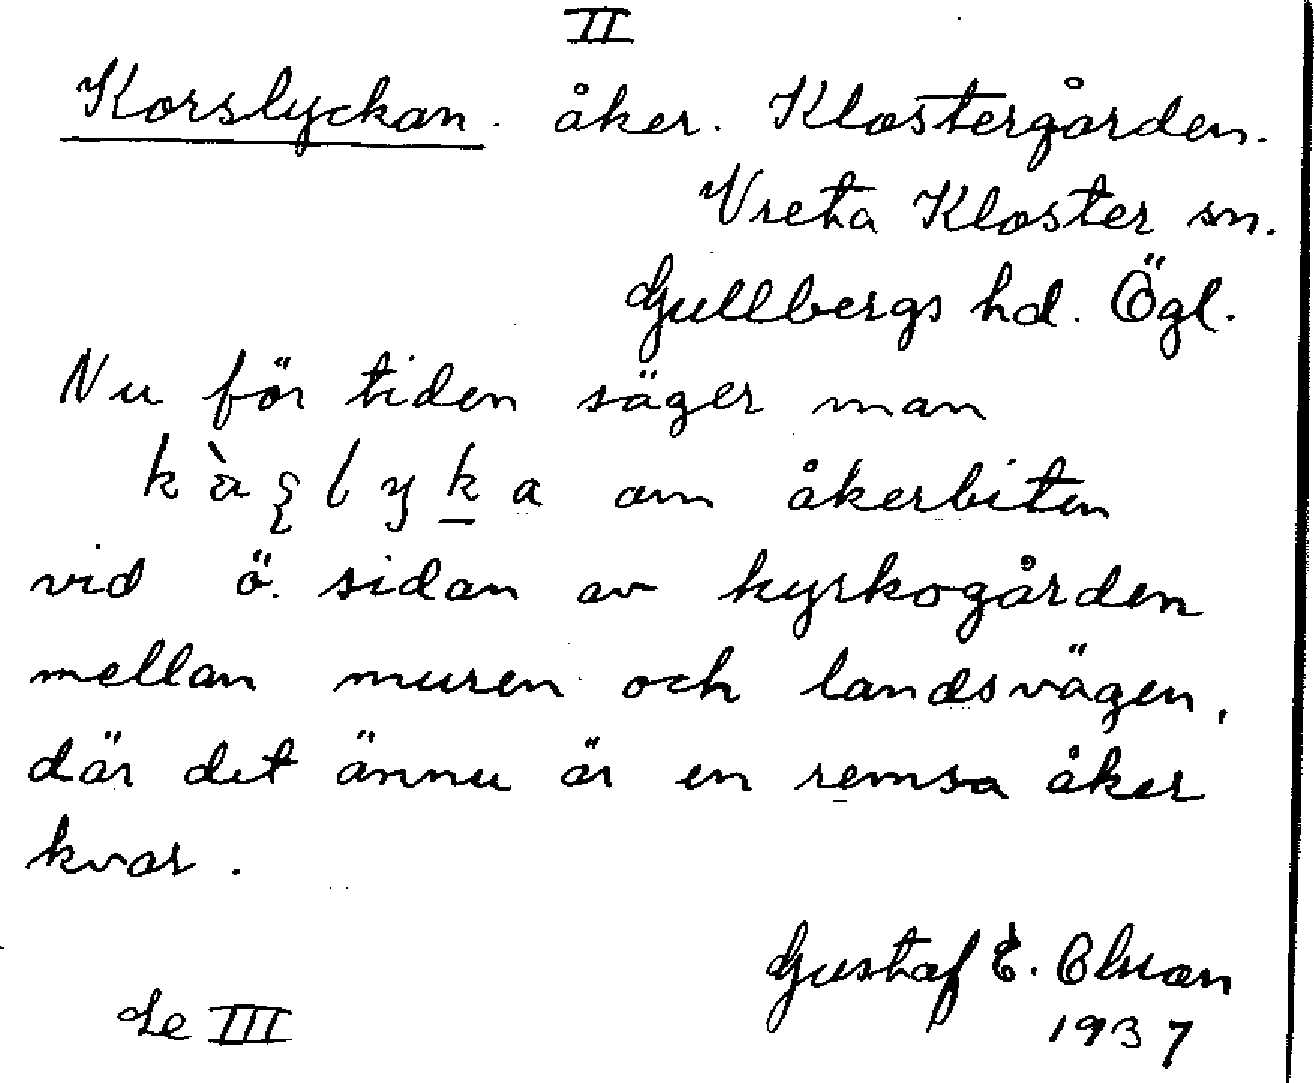 II
Korslyckan. åker. Klostergården.
Vreta Kloster sn.
Gullbergs hd. Ögl.
Nu för tiden säger man
om åkerbiten
vid ö. sidan av kyrkogården
mellan muren och landsvägen,
där det ännu är en remsa åker
kvar.
Gustaf E.
Se III 1937